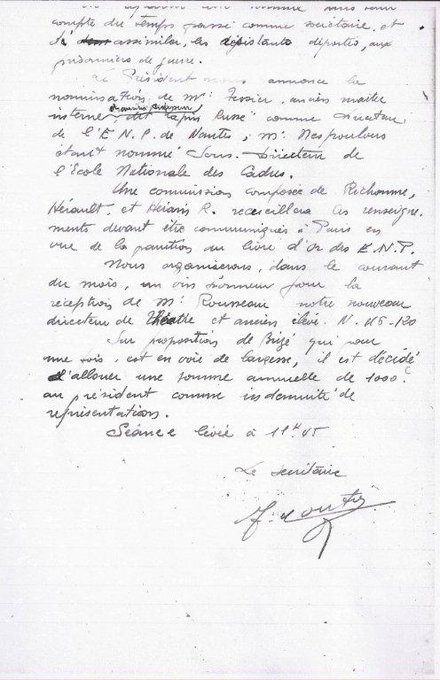 compte du temps passé comme secrétaire, et
d' assimiler les déportés, aux
prisonniers de guerre.
Le Président nous annonce la
nomination de Mr Tessier, ancien maître
interne, dit lapin Russe comme Directeur
de l'E.N.P. de Nantes, Mr Despoulous
étant nommé Sous-Directeur de
l'Ecole Nationale des Cadres.
Une commission composée de Richomme,
Hérault, et R. recueillera les renseigne
ments devant être communiqués à Paris en
vue de la parution du livre d'Or des E.N.P.
Nous organiserons, dans le courant
du mois, un vin d'honneur pour la
réception de Mr Rousseau notre nouveau
directeur de Théatre et ancien élève. N. 115-120
Sur proposition de Brizé qui pour
une fois, est en voie de largesse, il est décidé
d'allouer une somme annuelle de 1000.
au président comme indemnité de
représentations.
Séance levée à 11h45
Le secrétaire